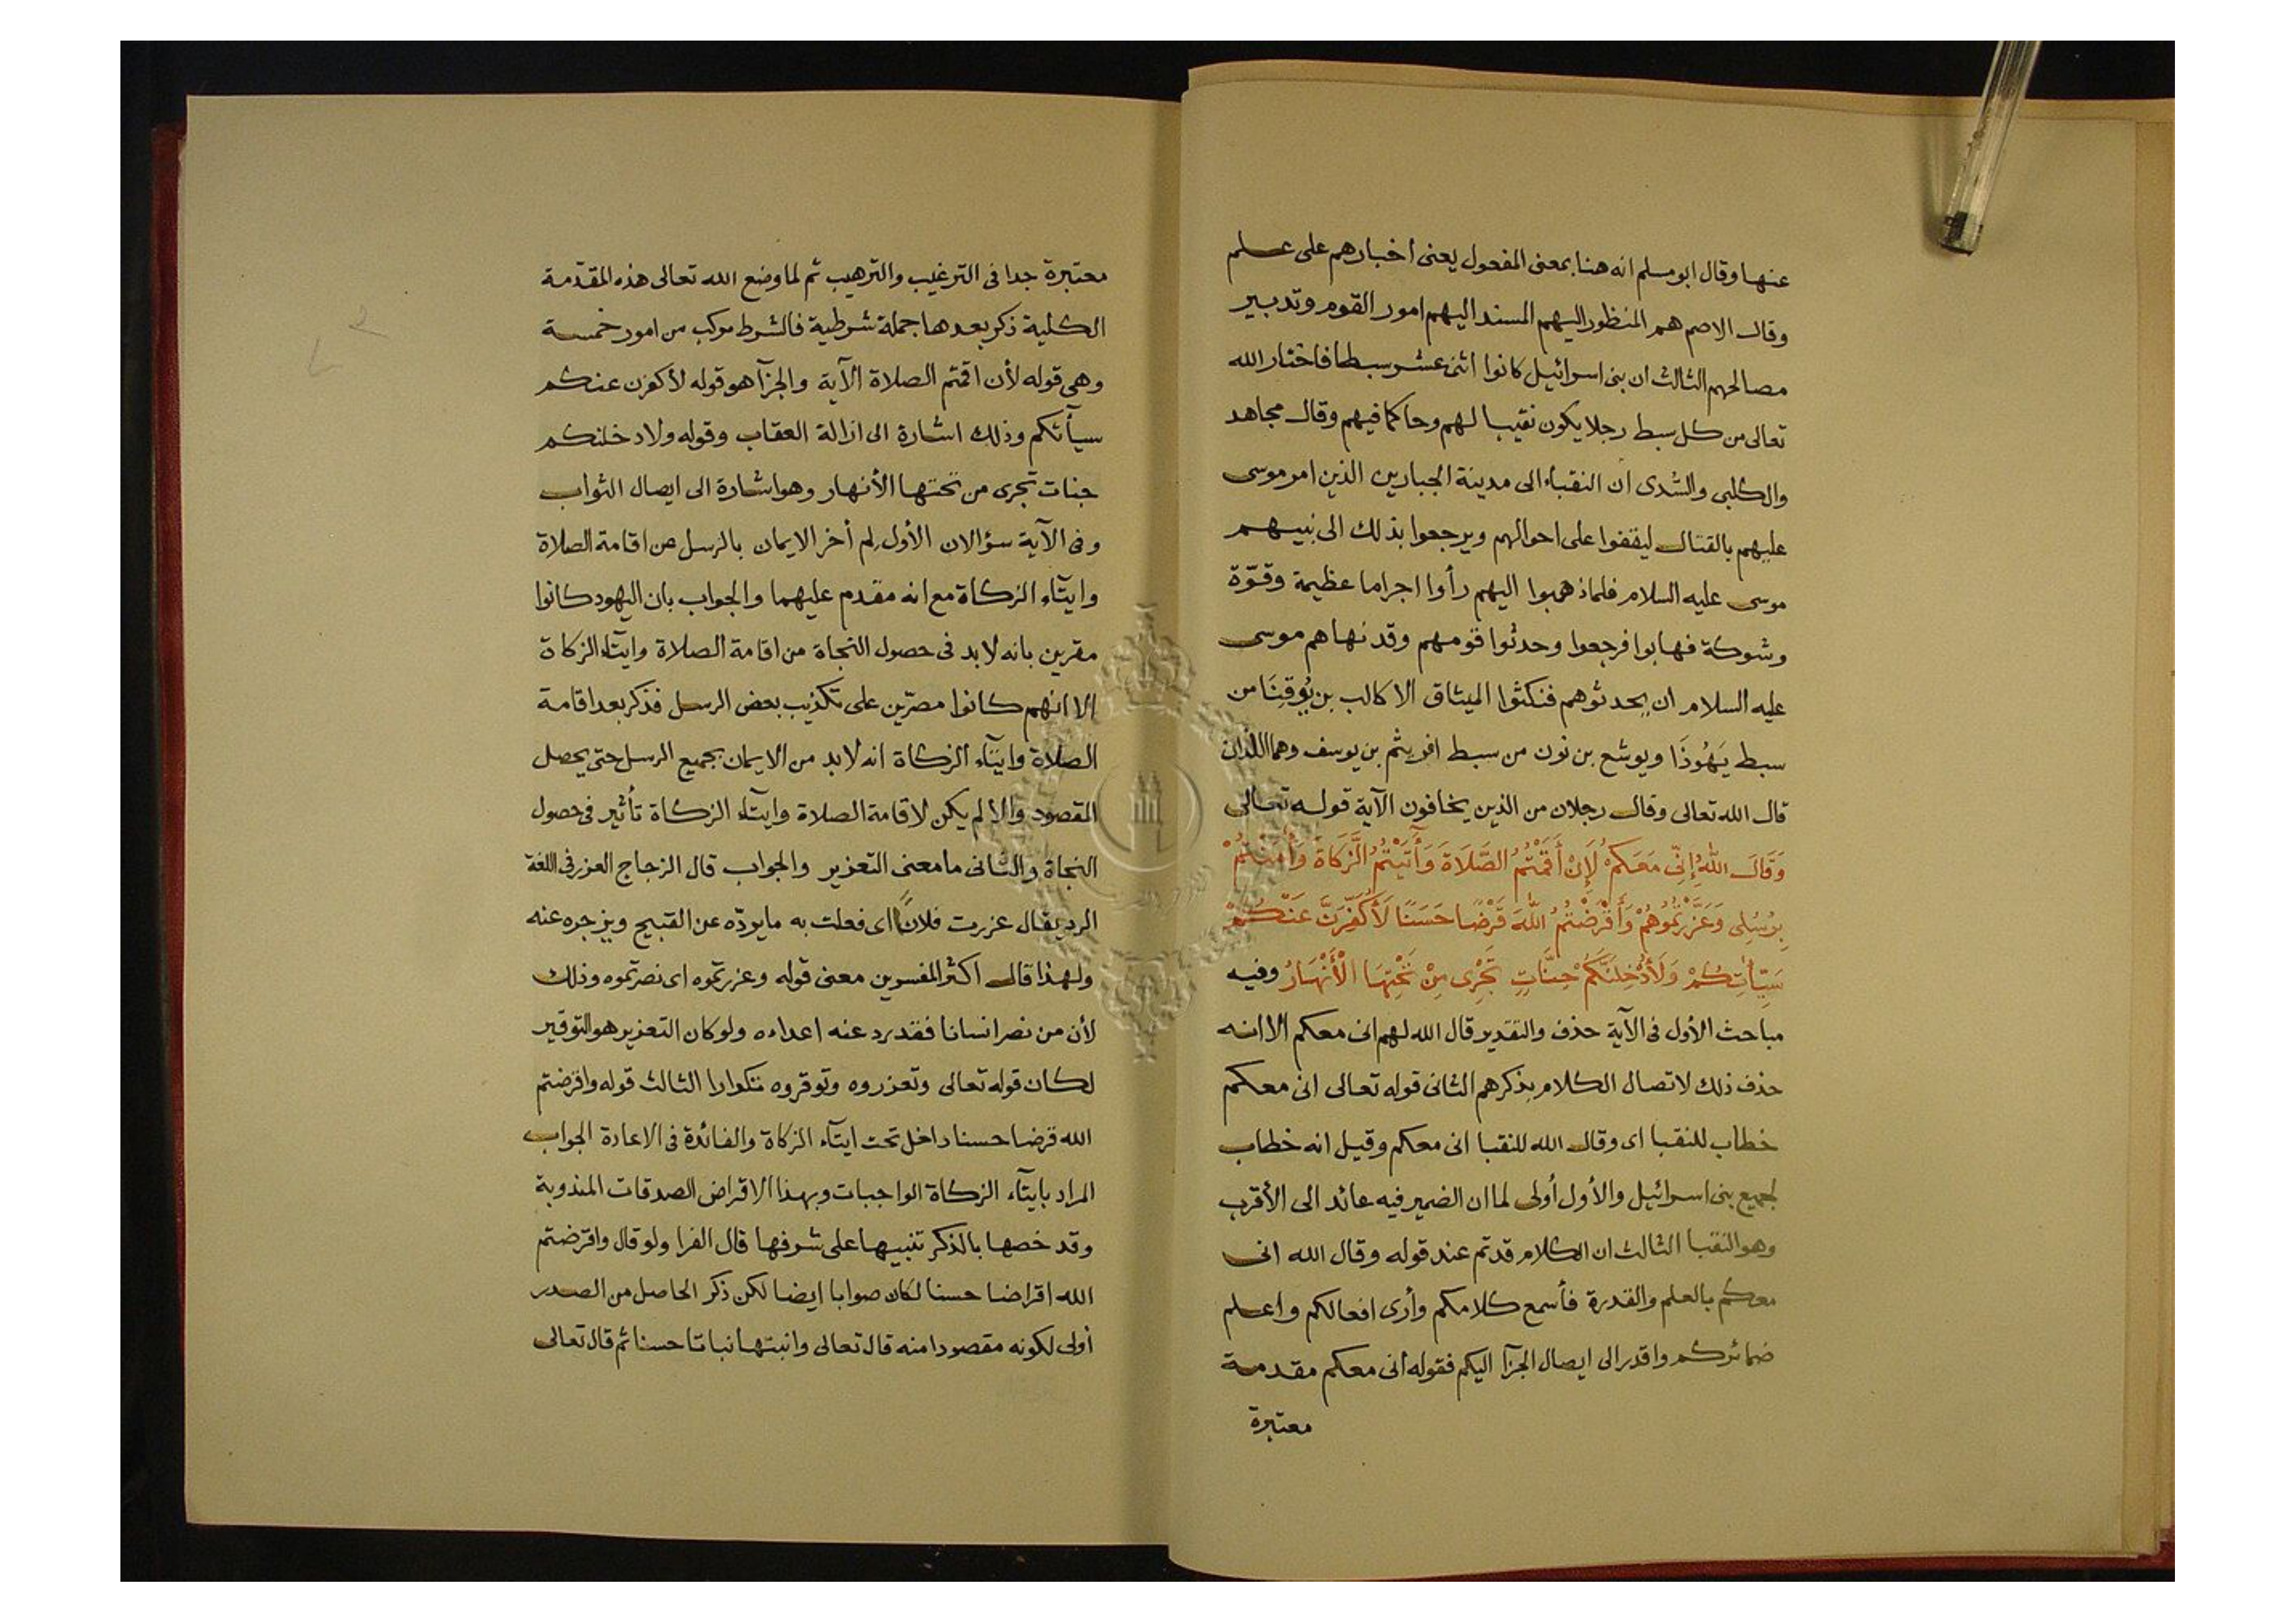 عنها وقال ابو مسلم انه هنا بمعنى المفعول يعنى اخبارهم على علم
وقال الاصم هم المنظور اليهم المسند اليهم امور القوم وتدبير
مصالحهم الثالث ان بنى اسرائيل كانوا اثنى عشر سبطا فاختار الله
تعالى من كل سبط رجلا يكون نقيبا لهم وحاكما فيهم وقال مجاهد
والكلبى والسّدى ان النقباء الى مدينة الجبارين الذين امر موسى
عليهم بالقتال ليقفوا على احوالهم ويرجعوا بذلك الى نبيهم
موسى عليه السلام فلما ذهبوا اليهم رأوا اجراما عظيمة وقوّة
وشوكة فهابوا فرجعوا وحدثوا قومهم وقد نهاهم موسى
عليه السلام ان يحدثوهم فنكثوا الميثاق الا كالب بن يُوقِنَا من
سبط يَهُوذَا ويوشع بن نون من سبط افريثم بن يوسف وهما اللذان
قال الله تعالى وقال رجلان من الذين يخافون الآية قوله تعالى
وَقَالَ اللهُ إِنِّى مَعَكُمْ لَإِنْ أَقَمْتُمُ الصَّلَاةَ وَأٓتَيْتُمُ الزَّكَاةَ وَأٰمَنْتُمْ
بِرُسُلِى وَعَزَّرْتُمُوهُمْ وَأَقْرَضْتُمُ اللهَ قَرْضًا حَسَنًا لَأُكَفِّرَنَّ عَنْكُمْ
سَيِّأٰتِكُمْ وَلَأُدْخِلَنَّكُمْ جَنَّاتٍ تَجْرِى مِنْ تَحْتِهَا الْأَنْهَارُ وفيه
مباحث الأول فى الآية حذف والتقدير قال الله لهم انى معكم الا انه
حذف ذلك لاتصال الكلام بذكرهم الثانى قوله تعالى انى معكم
خطاب للنقبا اى وقال الله للنقبا انى معكم وقيل انه خطاب
لجميع بنى اسرائيل والأول أولى لما ان الضمير فيه عائد الى الأقرب
وهو النقبا الثالث ان الكلام قد تم عند قوله وقال الله انى
معكم بالعلم والقدرة فأسمع كلامكم وأرى افعالكم واعلم
ضمائركم واقدر الى ايصال الجزآ اليكم فقوله انى معكم مقدمة
معتبرة
معتبرة جدا فى الترغيب والترهيب ثم لما وضع الله تعالى هذه المقدّمة
الكلية ذكر بعدها جملة شرطية فالشرط مركب من امور خمسة
وهى قوله لأن اقمتم الصلاة الآية والجزآ هو قوله لأكفرن عنكم
سيأتكم وذلك اشارة الى ازالة العقاب وقوله ولادخلنكم
جنات تجرى من تحتها الأنهار وهو اشارة الى ايصال الثواب
وفى الآية سؤالان الأول لم أخر الايمان بالرسل عن اقامة الصلاة
وايتآء الزكاة مع انه مقدم عليهما والجواب بان اليهود كانوا
مقرين بانه لا بد فى حصول النجاة من اقامة الصلاة وايتآء الزكاة
الا انهم كانوا مصرّين على تكذيب بعض الرسل فذكر بعد اقامة
الصلاة وايتآء الزكاة انه لا بد من الايمان بجميع الرسل حتى يحصل
المقصود والا لم يكن لاقامة الصلاة وايتآء الزكاة تأثير فى حصول
النجاة والثانى ما معنى التعزير والجواب قال الزجاج العزر فى اللغة
الرد يقال عزرت فلانًا اى فعلت به ما يردّه عن القبيح ويزجره عنه
ولهذا قال اكثر المفسرين معنى قوله وعزرتموه اى نصرتموه وذلك
لأن من نصر انسانا فقد رد عنه اعداءه ولو كان التعزير هو التوقير
لكان قوله تعالى وتعزروه وتوقروه تكرارا الثالث قوله واقرضتم
الله قرضا حسنا داخل تحت ايتآء الزكاة والفائدة فى الاعادة الجواب
المراد بايتآء الزكاة الواجبات وبهذا الاقراض الصدقات المندوبة
وقد خصها بالذكر تنبيها على شرفها قال الفرا ولو قال واقرضتم
الله اقراضا حسنا لكان صوابا ايضا لكن ذكر الحاصل من الصدر
أولى لكونه مقصودا منه قال تعالى وانبتها نباتا حسنا ثم قال تعالى